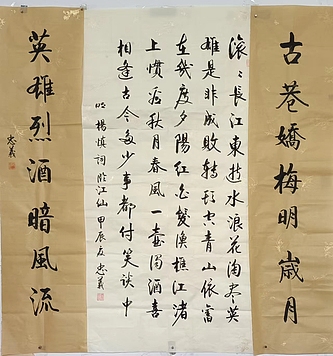 古巷嬌梅明歲月
滚〻長江東逝水浪花淘尽英
雄是非成敗轉頭空青山依舊
在幾度夕陽紅白髮漁樵江渚
上慣看秋月春風一壺濁酒喜
相逢古今多少事都付笑談中
明 楊慎詞临江仙 甲辰夏 忠義
英雄烈酒暗風流
忠義